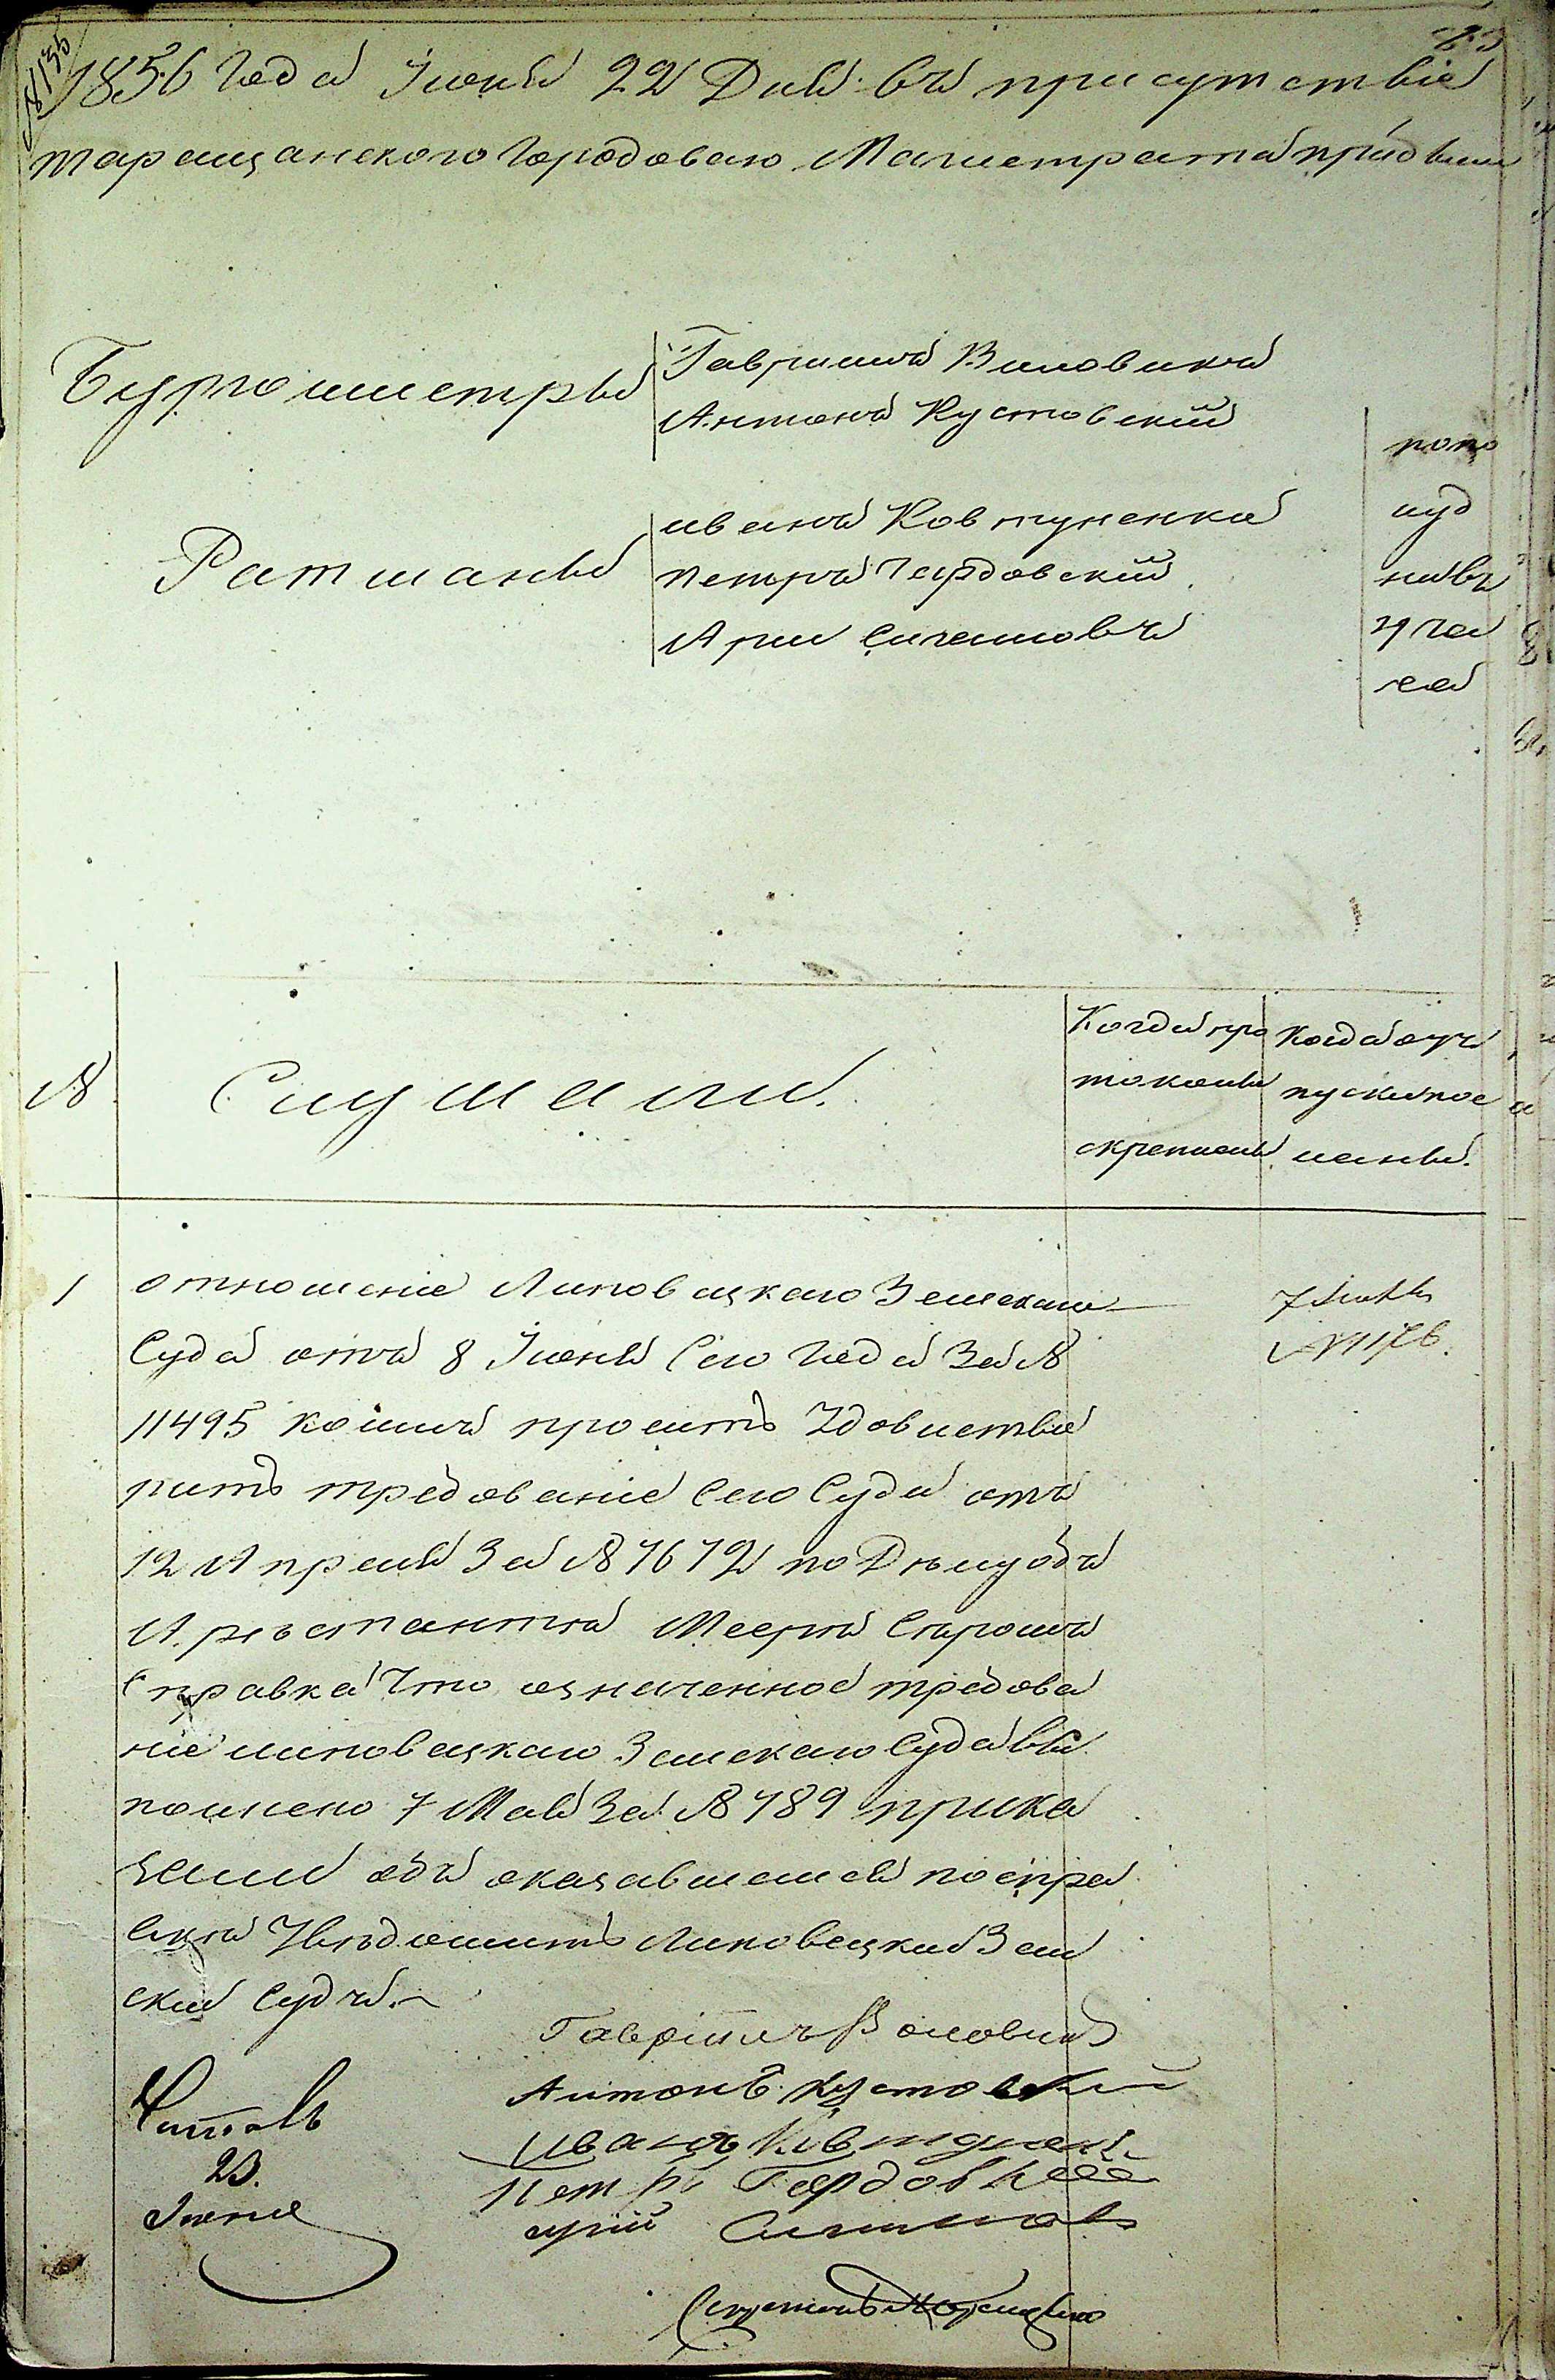 № 136
1856 Года Іюня 22 Дня въ присутствіе
таращанского Городоваго Магистрата прибыли
Бургомистры
Гавриилъ Воловикъ
Антонъ Кустовскій
Ратманы
иванъ Ковтуненко
петръ Гордовскій
Арій
попо
луд
нивъ
часа
№
Слушали.
Когда про
токолы
скреплены
когда от
пуски пос
ланы.
1
отношеніе Липовецкаго Земскаго
Суда отъ 8 Іюня Сего Года За №
11495 коимъ проситъ Удовлетво
рить требованіе Сего Суда отъ
12 Апреля За № 7672 по Дѣлу объ
Арѣстантѣ Меерѣ
Справка Что означенное требова
ніе липовецкаго Земскаго Суда вы
полнено 7 Мая За № 789 прика
зали объ оказавшемся по спра
вкѣ Увѣдомить Липовецкий Зем
ский Судъ.
7 Іюля
Гавріилъ Воловикъ
Антонъ Кустовскій
Иванъ Ковтунен
Петръ Гордовскій
арій
Читалъ
23.
Іюня